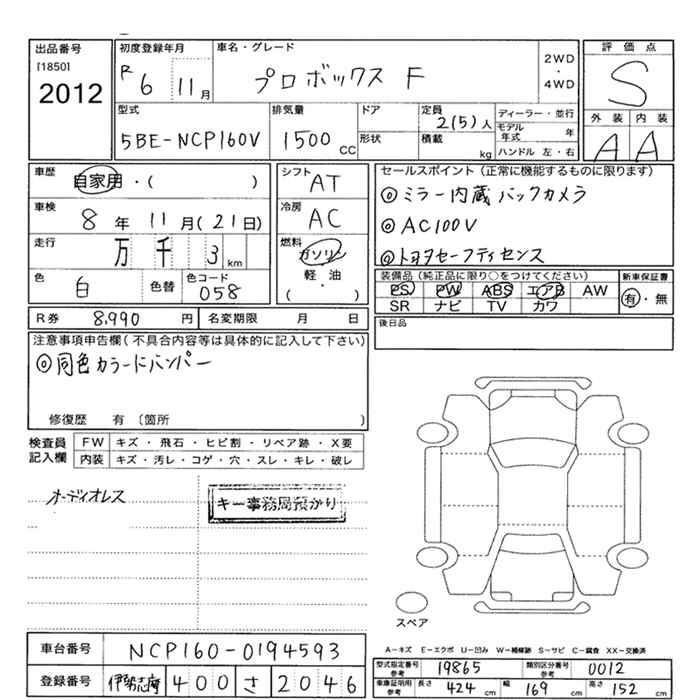 出品番号 初度登録年月 車名・グレード 評価点
[1850] R 6 11月 プロボックス F 2WD ・ 4WD S
2012
型式 排気量 ドア 定員 2(5)人 ディーラー・並行 外装 内装
5BE-NCP160V 1500 CC 形状 積載 kg モデル年式 年 A A
ハンドル 左・右
車歴 自家用・( ) シフト AT セールスポイント(正常に機能するものに限ります)
車検 8年 11月(21日) 冷房 AC ◎ミラー内蔵バックカメラ
走行 万 千 3 km 燃料 ガソリン ◎AC100V
軽・油 ◎トヨタセーフティセンス
色 白 色替 色コード 058 ( ・ ) 装備品(純正品に限り○をつけてください) 新車保証書
PS PW ABS エアB AW 有・無
SR ナビ TV カワ
R券 8,990 円 名変期限 月 日 後日品
注意事項申告欄(不具合内容等は具体的に記入して下さい)
◎同色カラードバンパー
修復歴 有〔箇所 〕
検査員記入欄 FW キズ・飛石・ヒビ割・リペア跡・X要
内装 キズ・汚レ・コゲ・穴・スレ・キレ・破レ
オーディオレス キー事務局預かり
スペア
車台番号 NCP160-0194593 A-キズ E-エクボ U-凹み W-補修跡 S-サビ C-腐食 XX-交換済
登録番号 伊勢志摩 400 さ 2046 型式指定番号 参考 19865 類別区分番号 参考 0012
車庫証明用 参考 長さ 424 cm 幅 169 cm 高さ 152 cm